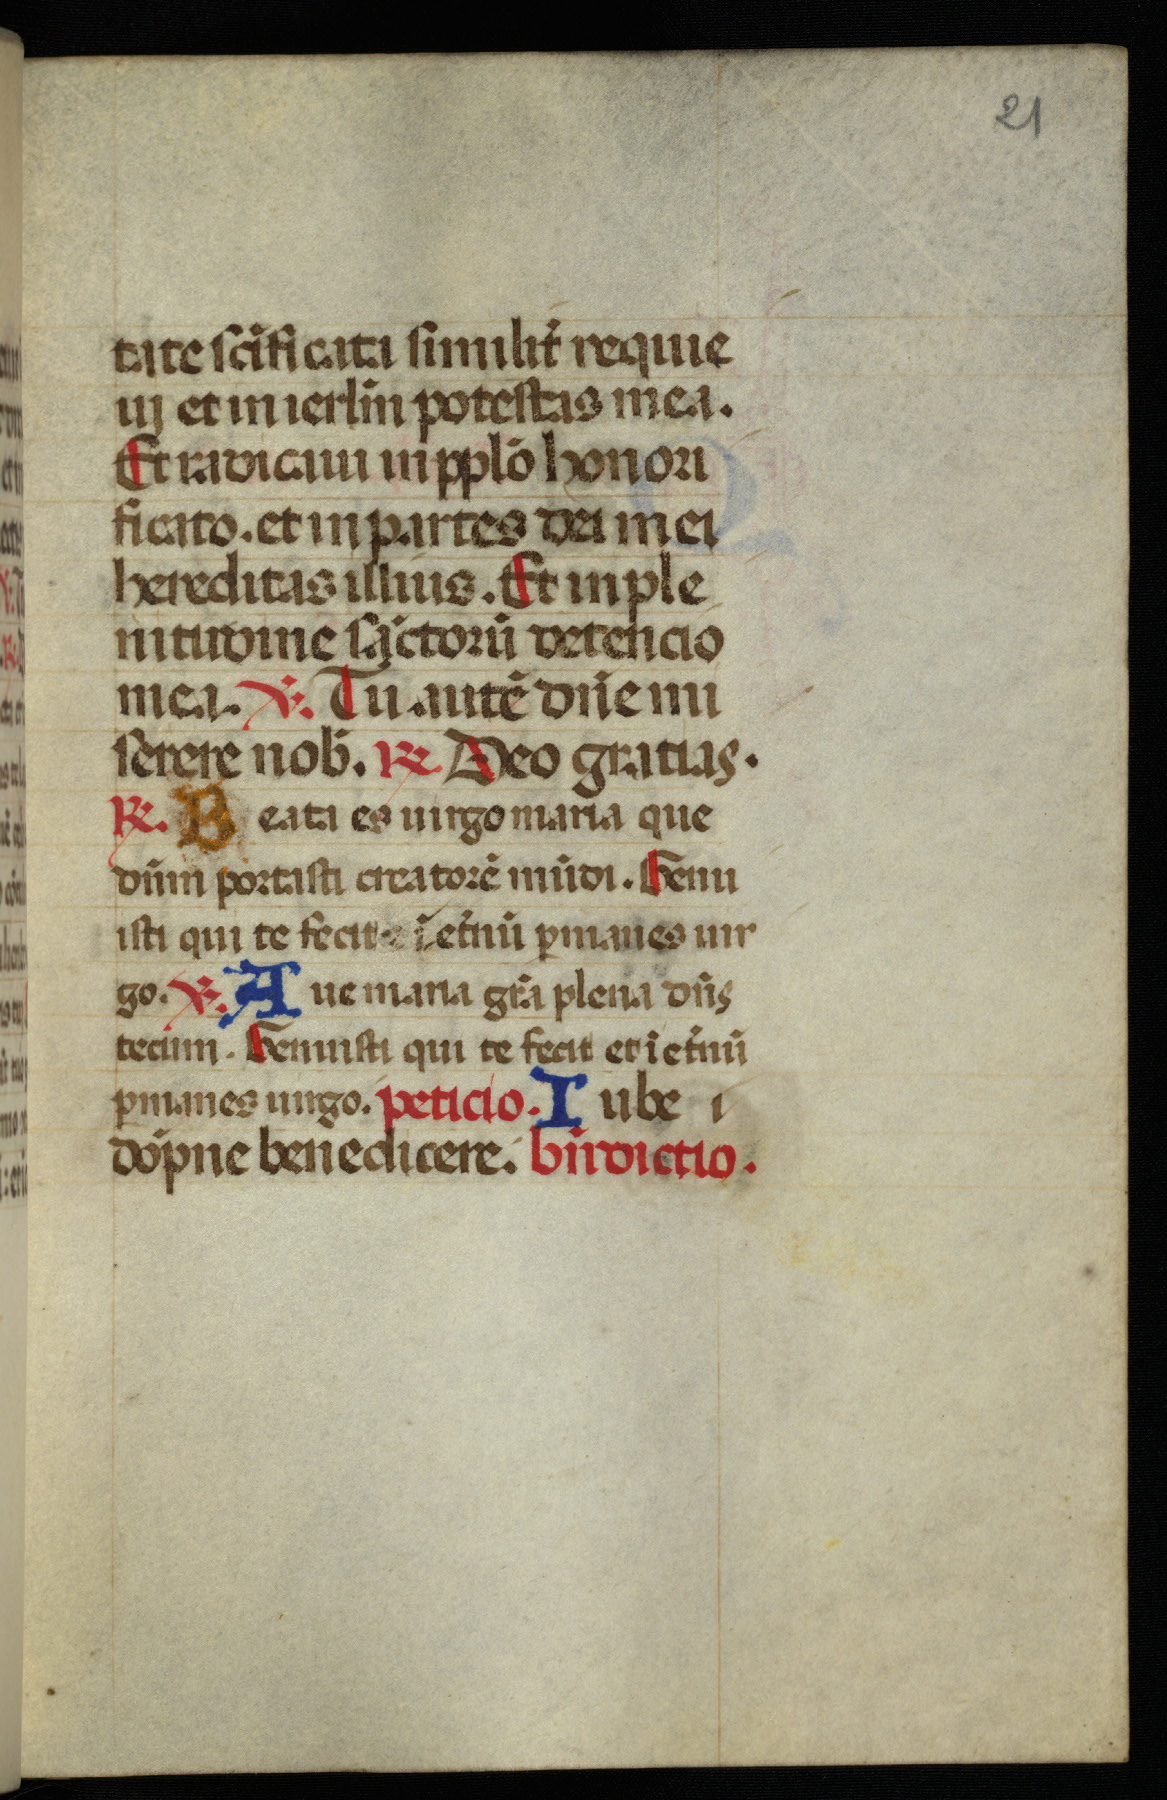 21
tate sc̄ificata similit̄ requie
ui et in ierlm̄ potestas mea.
Et radicaui in pplō honori
ficato. et in partes dei mei
hereditas illius. Et in ple
nitudine sāctorū detencio
mea. ℣. Tu autē dn̄e mi
serere nob̄. ℟. Deo gratias.
℟. Beata es uirgo maria que
dn̄m portasti creatorē mūdi. Genu
isti qui te fecit ⁊ ī et̄nū ꝑmanes uir
go. ℣. Aue maria gr̄a plena dn̄s
tecum. Genuisti qui te fecit et ī et̄nū
ꝑmanes uirgo. peticio. Iube
dōpne benedicere. bn̄dictio.